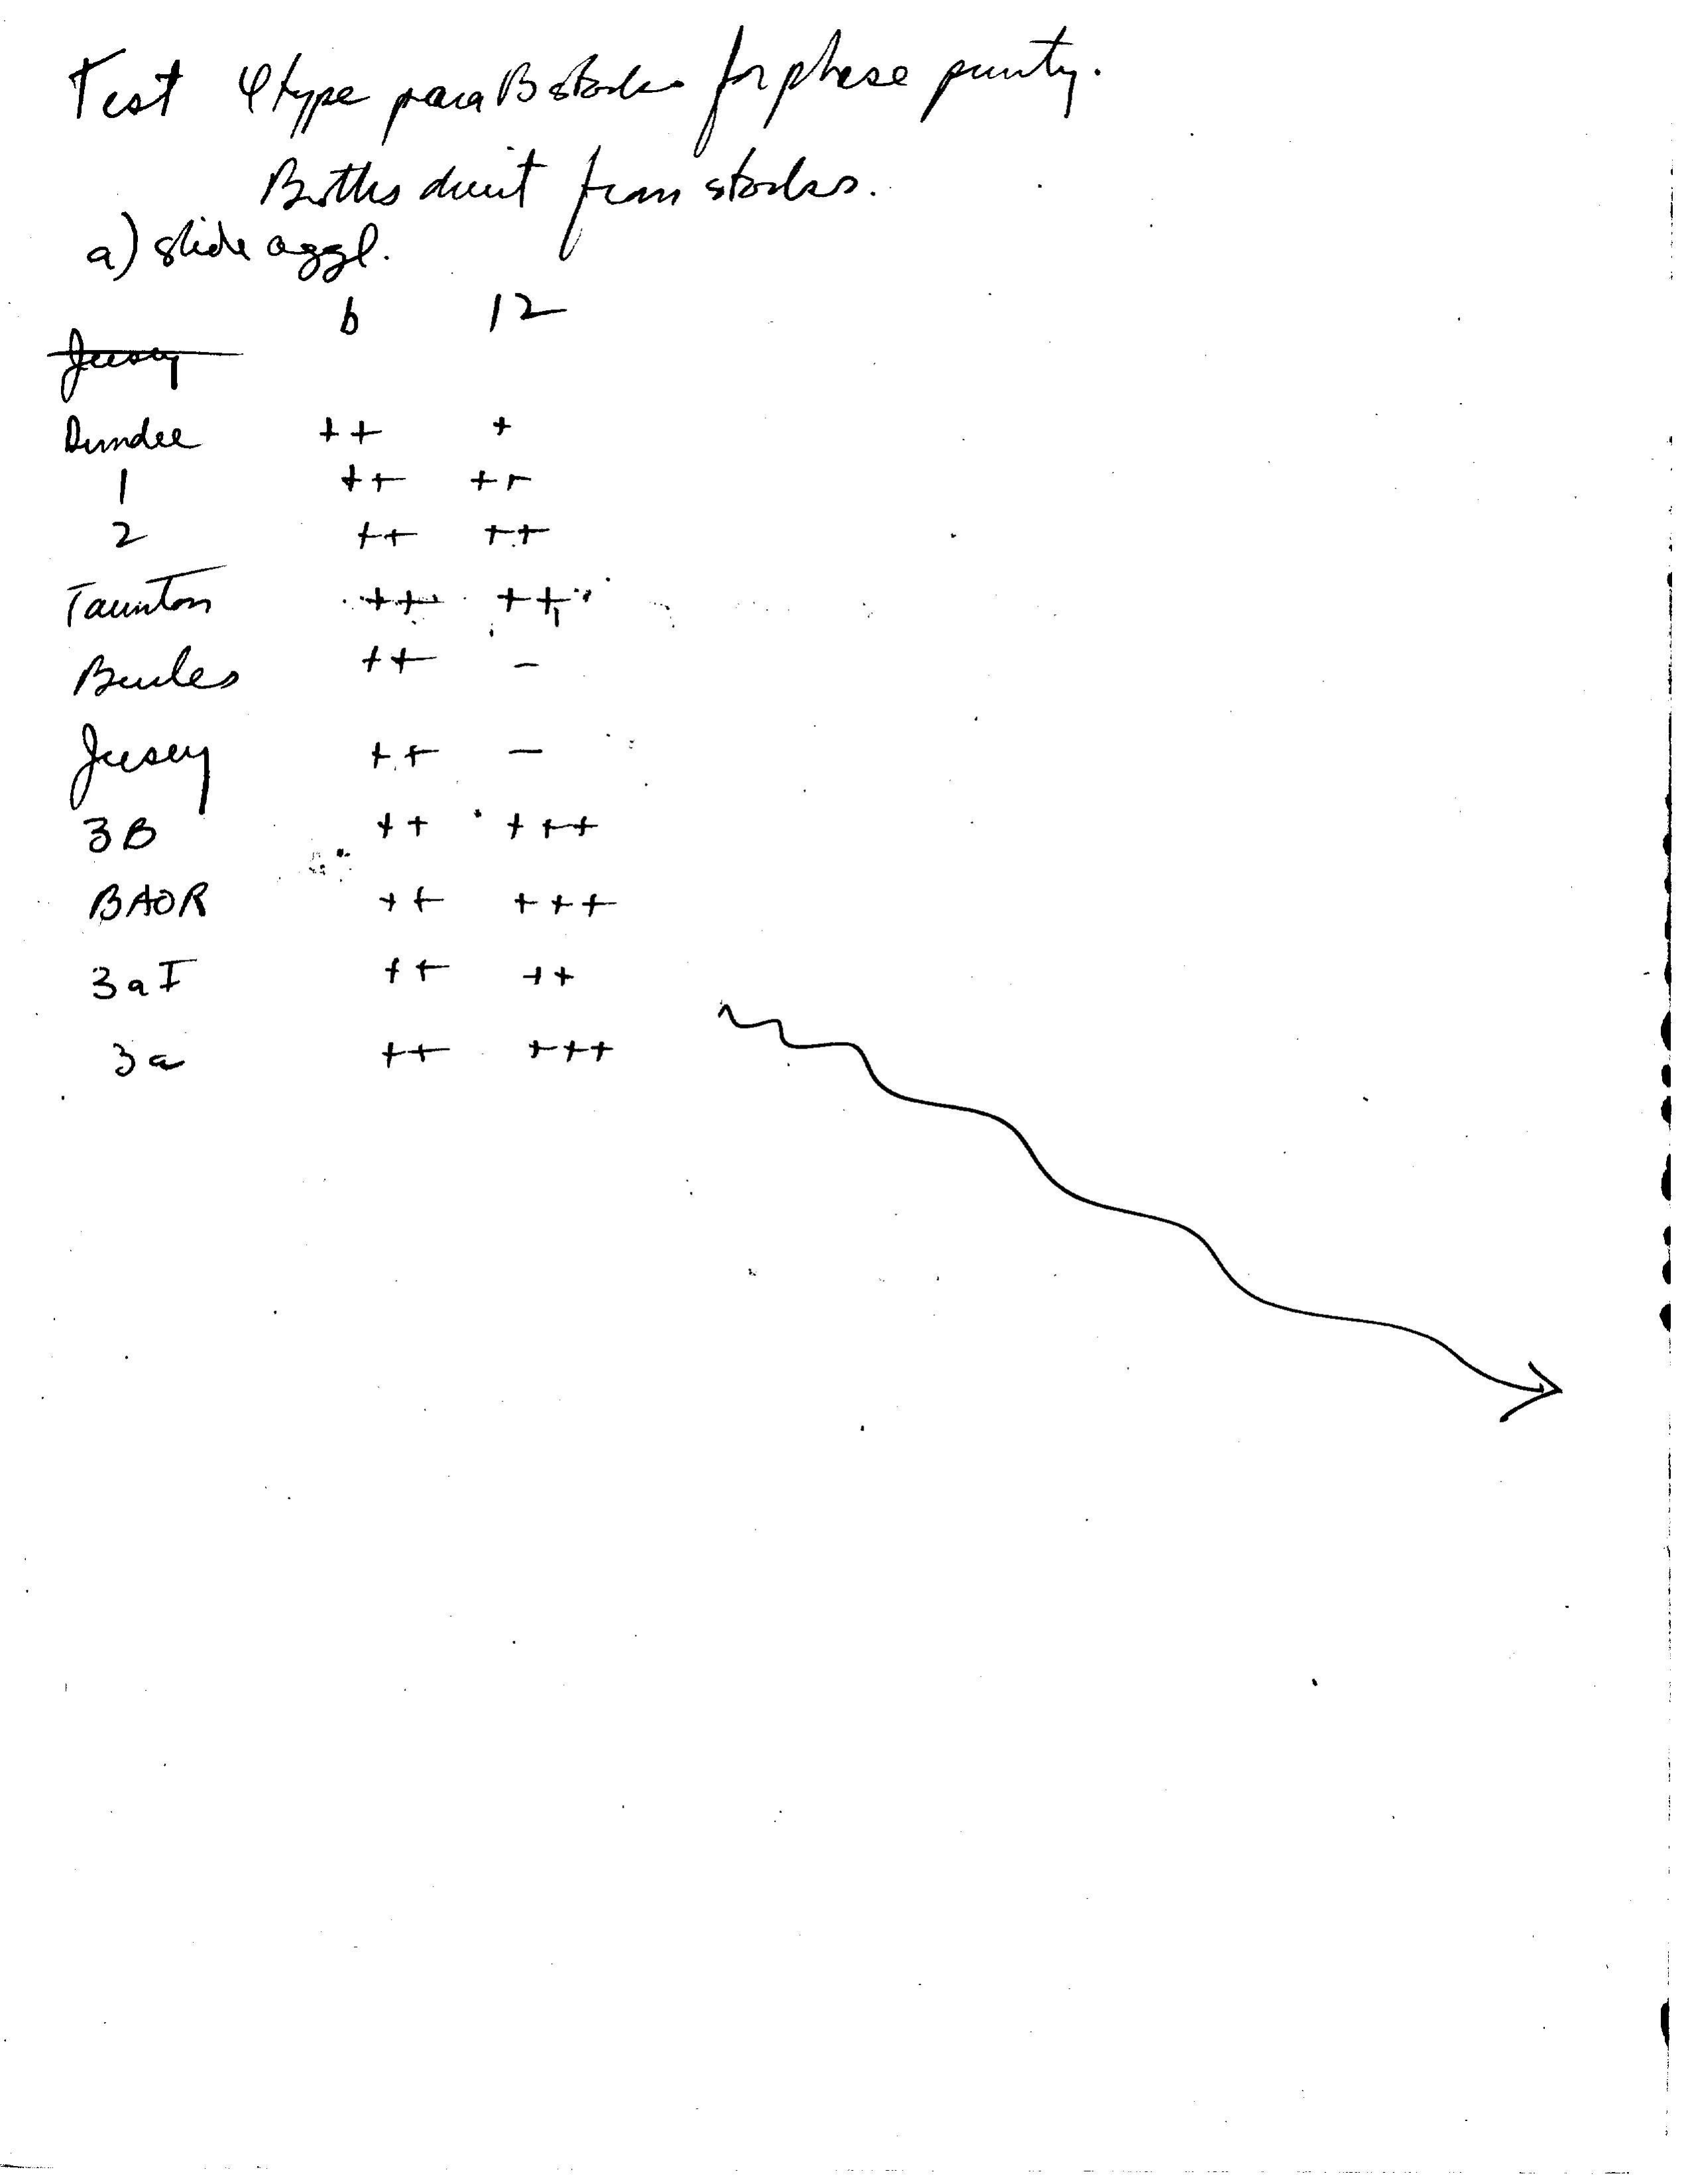 Test φtype para B stocks for phase purity.
Broths direct from stocks.
a) slide aggl.
b 12
Jersey
Dundee ++ +
1 ++ ++
2 ++ ++
Taunton ++ ++
Beccles ++ –
Jersey ++ –
3B ++ +++
BAOR ++ +++
3aI ++ ++
3a ++ +++